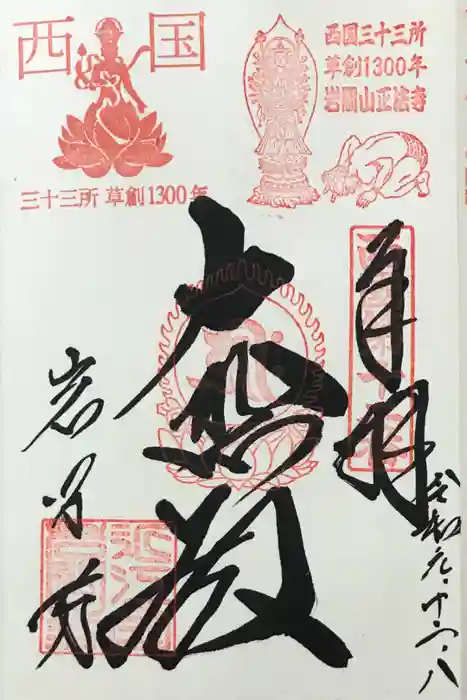 西国
三十三所 草創1300年
西国三十三所
草創1300年
岩間山正法寺
奉拝
大悲殿
岩間寺
令和元.十一.八